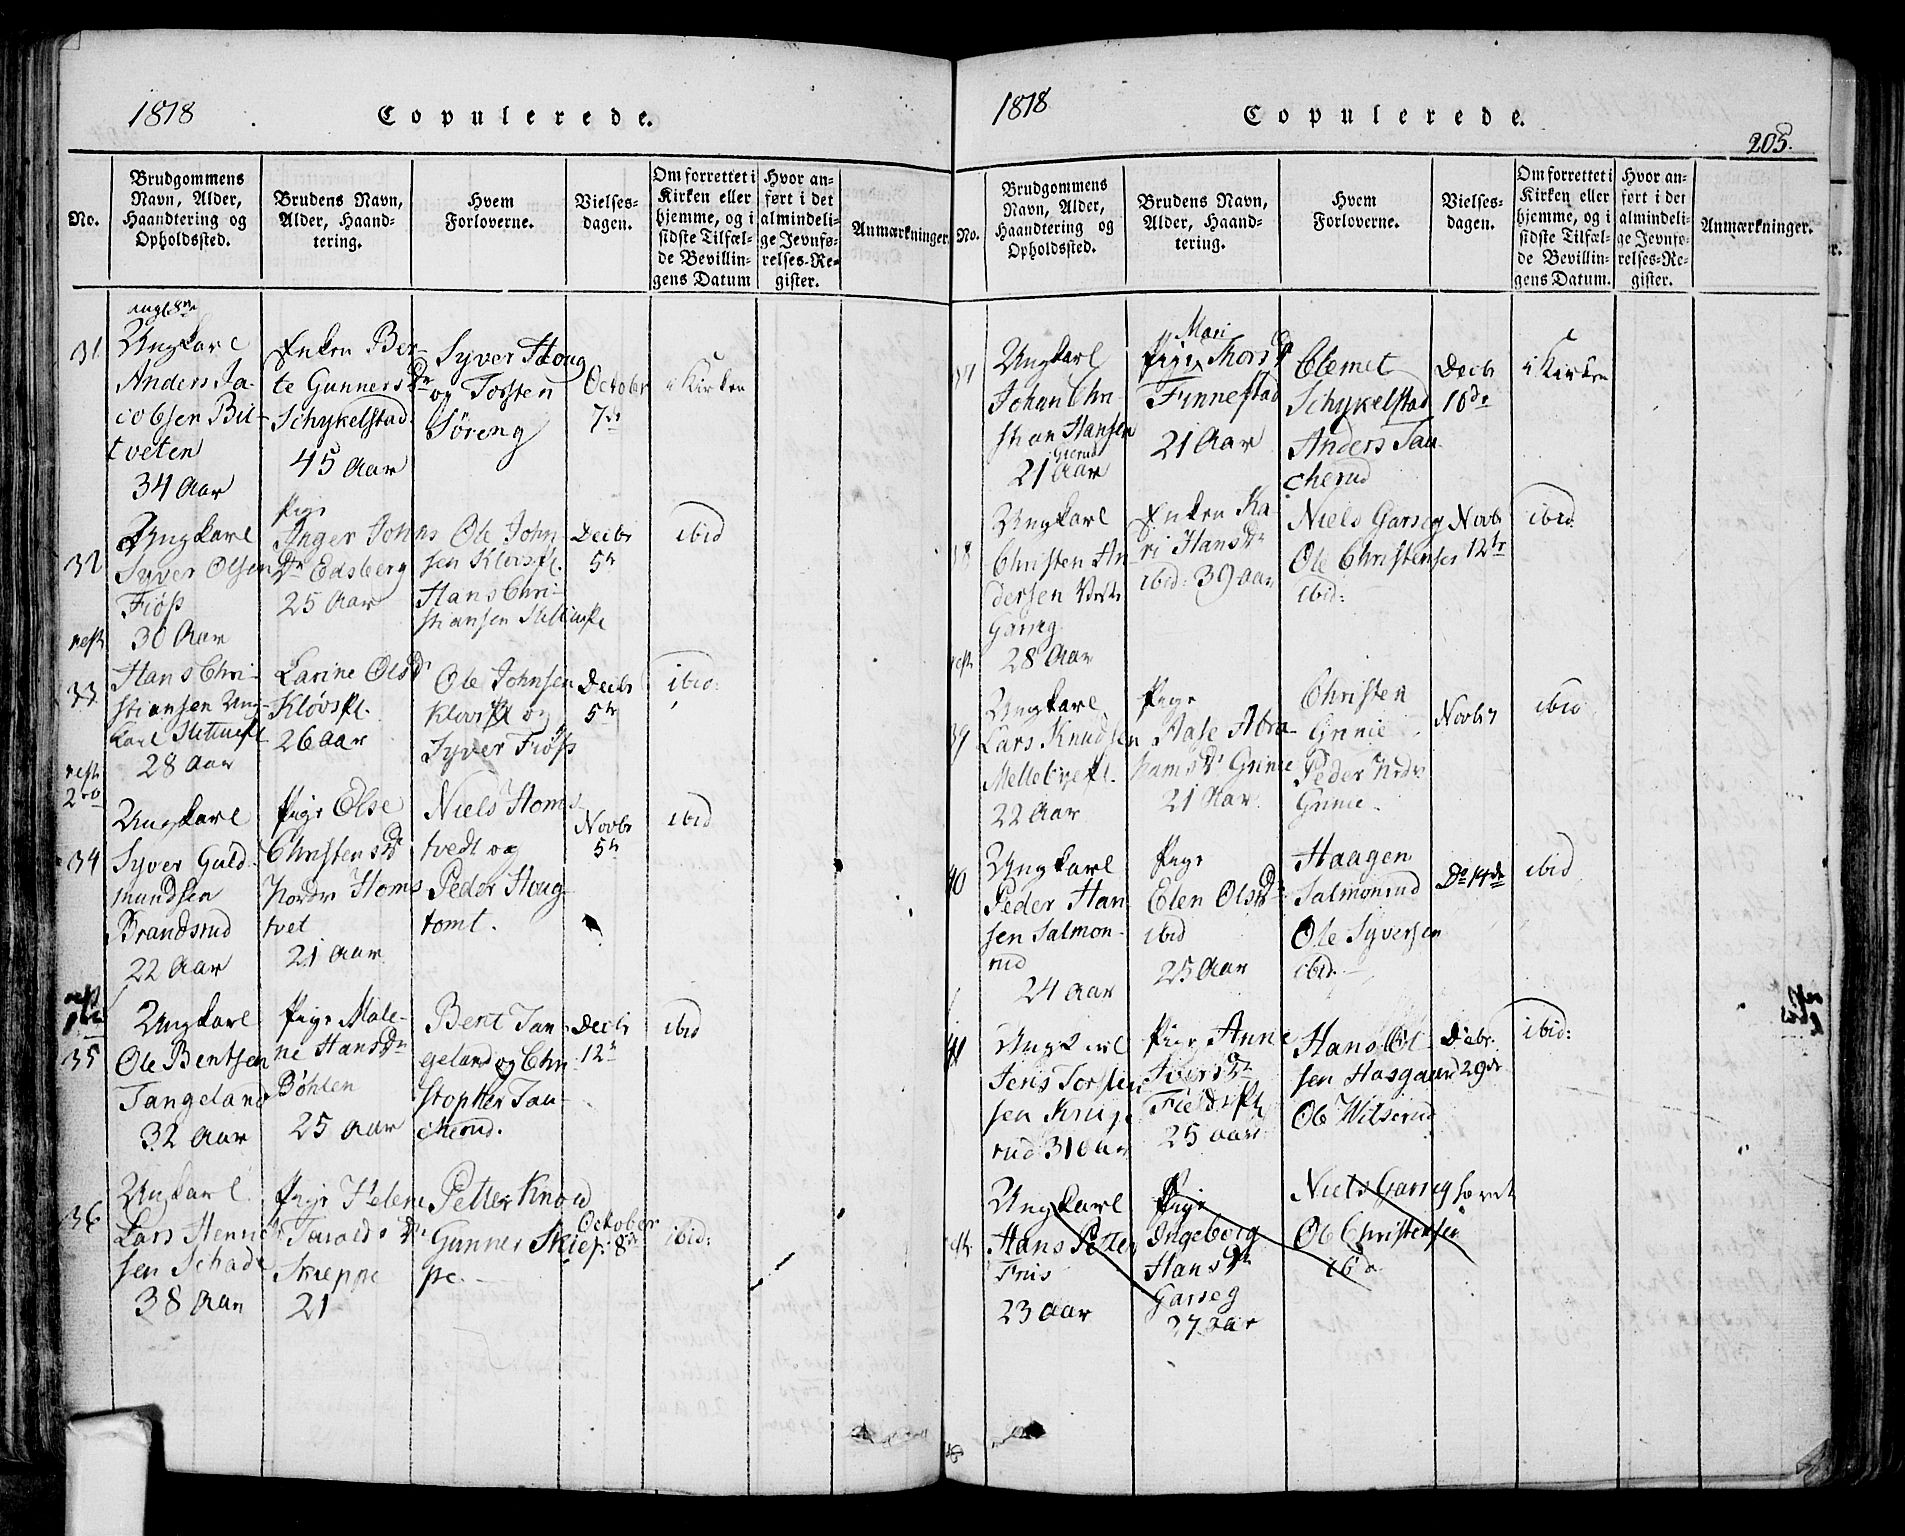 1818 Copulerede.
No.
Brudgommens
Navn, Alder,
Haandtering og
Opholdssted.
Brudens Navn,
Alder, Haand-
tering.
Hvem
Forloverne.
Vielses-
dagen.
Om forrettet i
Kirken eller
hjemme, og i
sidste Tilfæl-
de Bevillin-
gens Datum
Hvor an-
ført i det
almindeli-
ge Jevnfø-
relses-Re-
gister.
Anmærkninger.
31
Ungkarl
Anders Ja-
cobsen Bil-
tveten
34 Aar
Enken Ber-
te Gunnersdr
Schykelstad
45 Aar
Syver Houg
og Torsten
Søreng
October
7de
i Kirken
32
Ungkarl
Syver Olsen
Fiøss
30 Aar
Pige
Inger Johns
Dr Edsberg
25 Aar
Ole John
sen Klovspl.
Hans Chri-
stiansen
Decbr
5te
ibid
33
Hans Chri-
stiansen Ung-
karl
28 Aar
Larine Olsdr
Kløvspl.
26 aar
Ole Johnsen
Klovspl og
Syver Fiøss
Decbr
5te
ibid:
34
Ungkarl
Syver Guld-
mundsen
Brandsrud
22 Aar
Pige Else
Christensdr
Nordre Homs
tvet
21 Aar
Niels Homs
tvedt og
Peder Houg
tomt.
Novbr
5te
ibid
35
Ungkarl
Ole Bentsen
Tangeland
32 Aar
Pige Male-
ne Hansdr
Bøhlen
25 aar
Bent Tan
geland og Chri
stopher Tau
cherud.
Decbr
12te
ibid
36
Ungkarl
Lars Henrich
sen Schade
38 Aar
Pige Helene
Taraldsdr
Skieppe
21
Petter Knold
Gunner Skiep-
pe.
October
8de
ibid:
1818 Copulerede.
205.
No.
Brudgommens
Navn, Alder,
Haandtering og
Opholdssted.
Brudens Navn,
Alder, Haand-
tering.
Hvem
Forloverne.
Vielses-
dagen.
Om forrettet i
Kirken eller
hjemme, og i
sidste Tilfæl-
de Bevillin-
gens Datum.
Hvor an-
ført i det
almindeli-
ge Jevnfø-
relses-Re-
gister.
Anmærkninger.
37
Ungkarl
Johan Chri-
stian Hansen
21 Aar
Mari
Pige Thorsdr
Finnestad
21 Aar
Clemet
Schykelstad
Anders Tau
cherud
Decbr
18de
i Kirken
38
Ungkarl
Christen An
dersen Vestre
Garseg
28 Aar
Enken Ka
ri Hansdr
ibid: 39 aar
Niels Garseg
Ole Christensen
ibid:
Novbr
12te
ibid
39
Ungkarl
Lars Knudsen
22 Aar
Pige
Aase Abra
hamsdr Grinie
21 Aar
Christen
Grinie
Peder Nedre
Grinie
Novbr
ibid
40
Ungkarl
Peder Han
sen Salmon-
rud
24 aar
Pige
Elen Olsdr
ibid
25 Aar
Haagen
Salmonrud
Ole Syversen
ibid.
Do 14de
ibid
41
Ungkarl
Jens Torsten
sen Kruge
rud 31 Aar
Pige Anne
Iversdr
25 aar
Hans Ol
sen Hasgaard
Ole Wilserud
Debr.
29de
ibid:
Ungkarl
Hans Petter
Friis
23 aar
Pige
Ingeborg
Hansdr
Garseg
27 aar
Niels Garseg
Ole Christensen
ibid